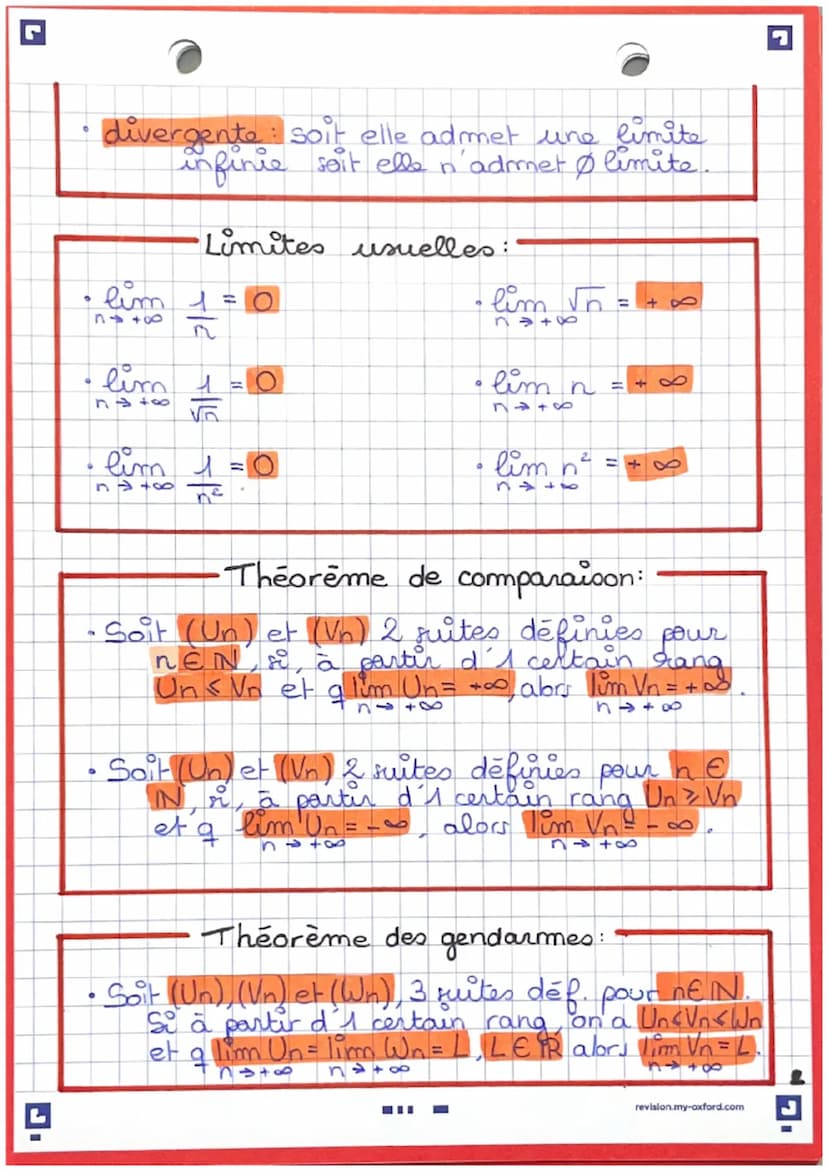 • divergente : soit elle admet une limite
infinie soit elle n'admet ∅ limite.
Limites usuelles :
• lim 1/n = 0
n → +∞
• lim √n = +∞
n → +∞
• lim 1/√n = 0
n → +∞
• lim n = +∞
n → +∞
• lim 1/n² = 0
n → +∞
• lim n² = +∞
n → +∞
Théorème de comparaison :
• Soit (Un) et (Vn) 2 suites définies pour
n ∈ ℕ, si, à partir d'1 certain rang
Un ≤ Vn et q lim Un = +∞, alors lim Vn = +∞.
n → +∞ n → +∞
• Soit (Un) et (Vn) 2 suites définies pour n ∈
ℕ, si, à partir d'1 certain rang Un ≥ Vn
et q lim Un = -∞, alors lim Vn = -∞.
n → +∞ n → +∞
Théorème des gendarmes :
• Soit (Un), (Vn) et (Wn), 3 suites déf. pour n ∈ ℕ.
Si à partir d'1 certain rang, on a Un ≤ Vn ≤ Wn
et q lim Un = lim Wn = L, L ∈ ℝ alors lim Vn = L.
n → +∞ n → +∞ n → +∞
2
revision.my-oxford.com